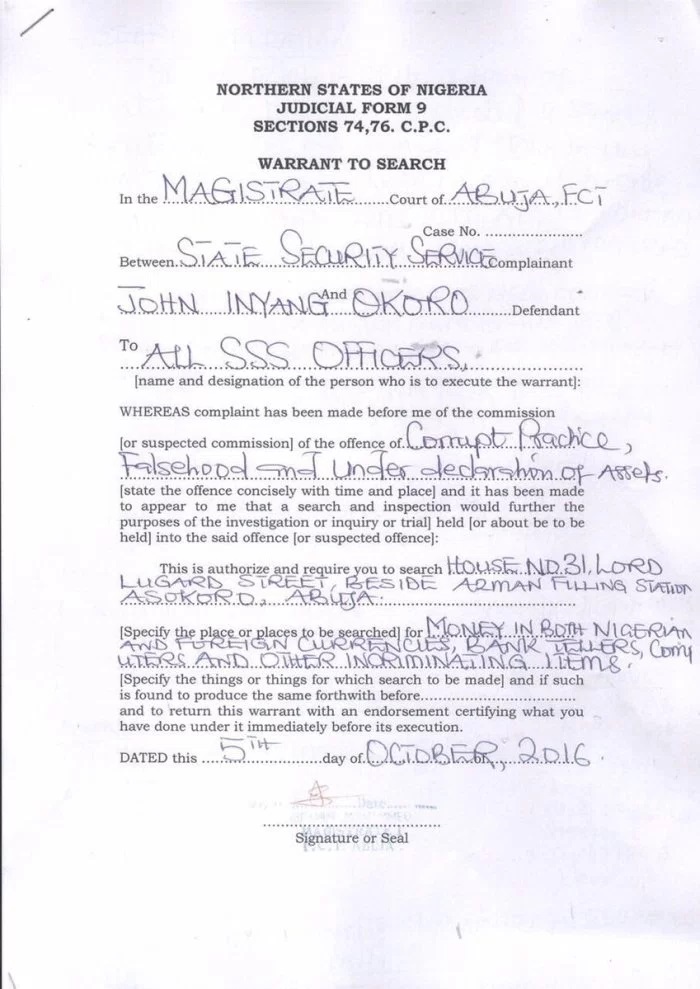 NORTHERN STATES OF NIGERIA
JUDICIAL FORM 9
SECTIONS 74,76. C.P.C.
WARRANT TO SEARCH
In the MAGISTRATE Court of ABUJA, FCT
Case No. ........................
Between STATE SECURITY SERVICE Complainant
And
JOHN INYANG OKORO Defendant
To ALL SSS OFFICERS,
[name and designation of the person who is to execute the warrant]:
WHEREAS complaint has been made before me of the commission
[or suspected commission] of the offence of Corrupt Practice,
Falsehood and Under declaration of Assets.
[state the offence concisely with time and place] and it has been made
to appear to me that a search and inspection would further the
purposes of the investigation or inquiry or trial] held [or about be to be
held] into the said offence [or suspected offence]:
This is authorize and require you to search HOUSE NO.31, LORD
LUGARD STREET, BESIDE A2MAN FILLING STATION
ASOKORO, ABUJA.
[Specify the place or places to be searched] for MONEY IN BOTH NIGERIAN
AND FOREIGN CURRENCIES, BANK TELLERS, COMP
UTERS AND OTHER INCRIMINATING ITEMS.
[Specify the things or things for which search to be made] and if such
is found to produce the same forthwith before...............................
and to return this warrant with an endorsement certifying what you
have done under it immediately before its execution.
DATED this 5TH day of OCTOBER, 2016.
Date
Signature or Seal